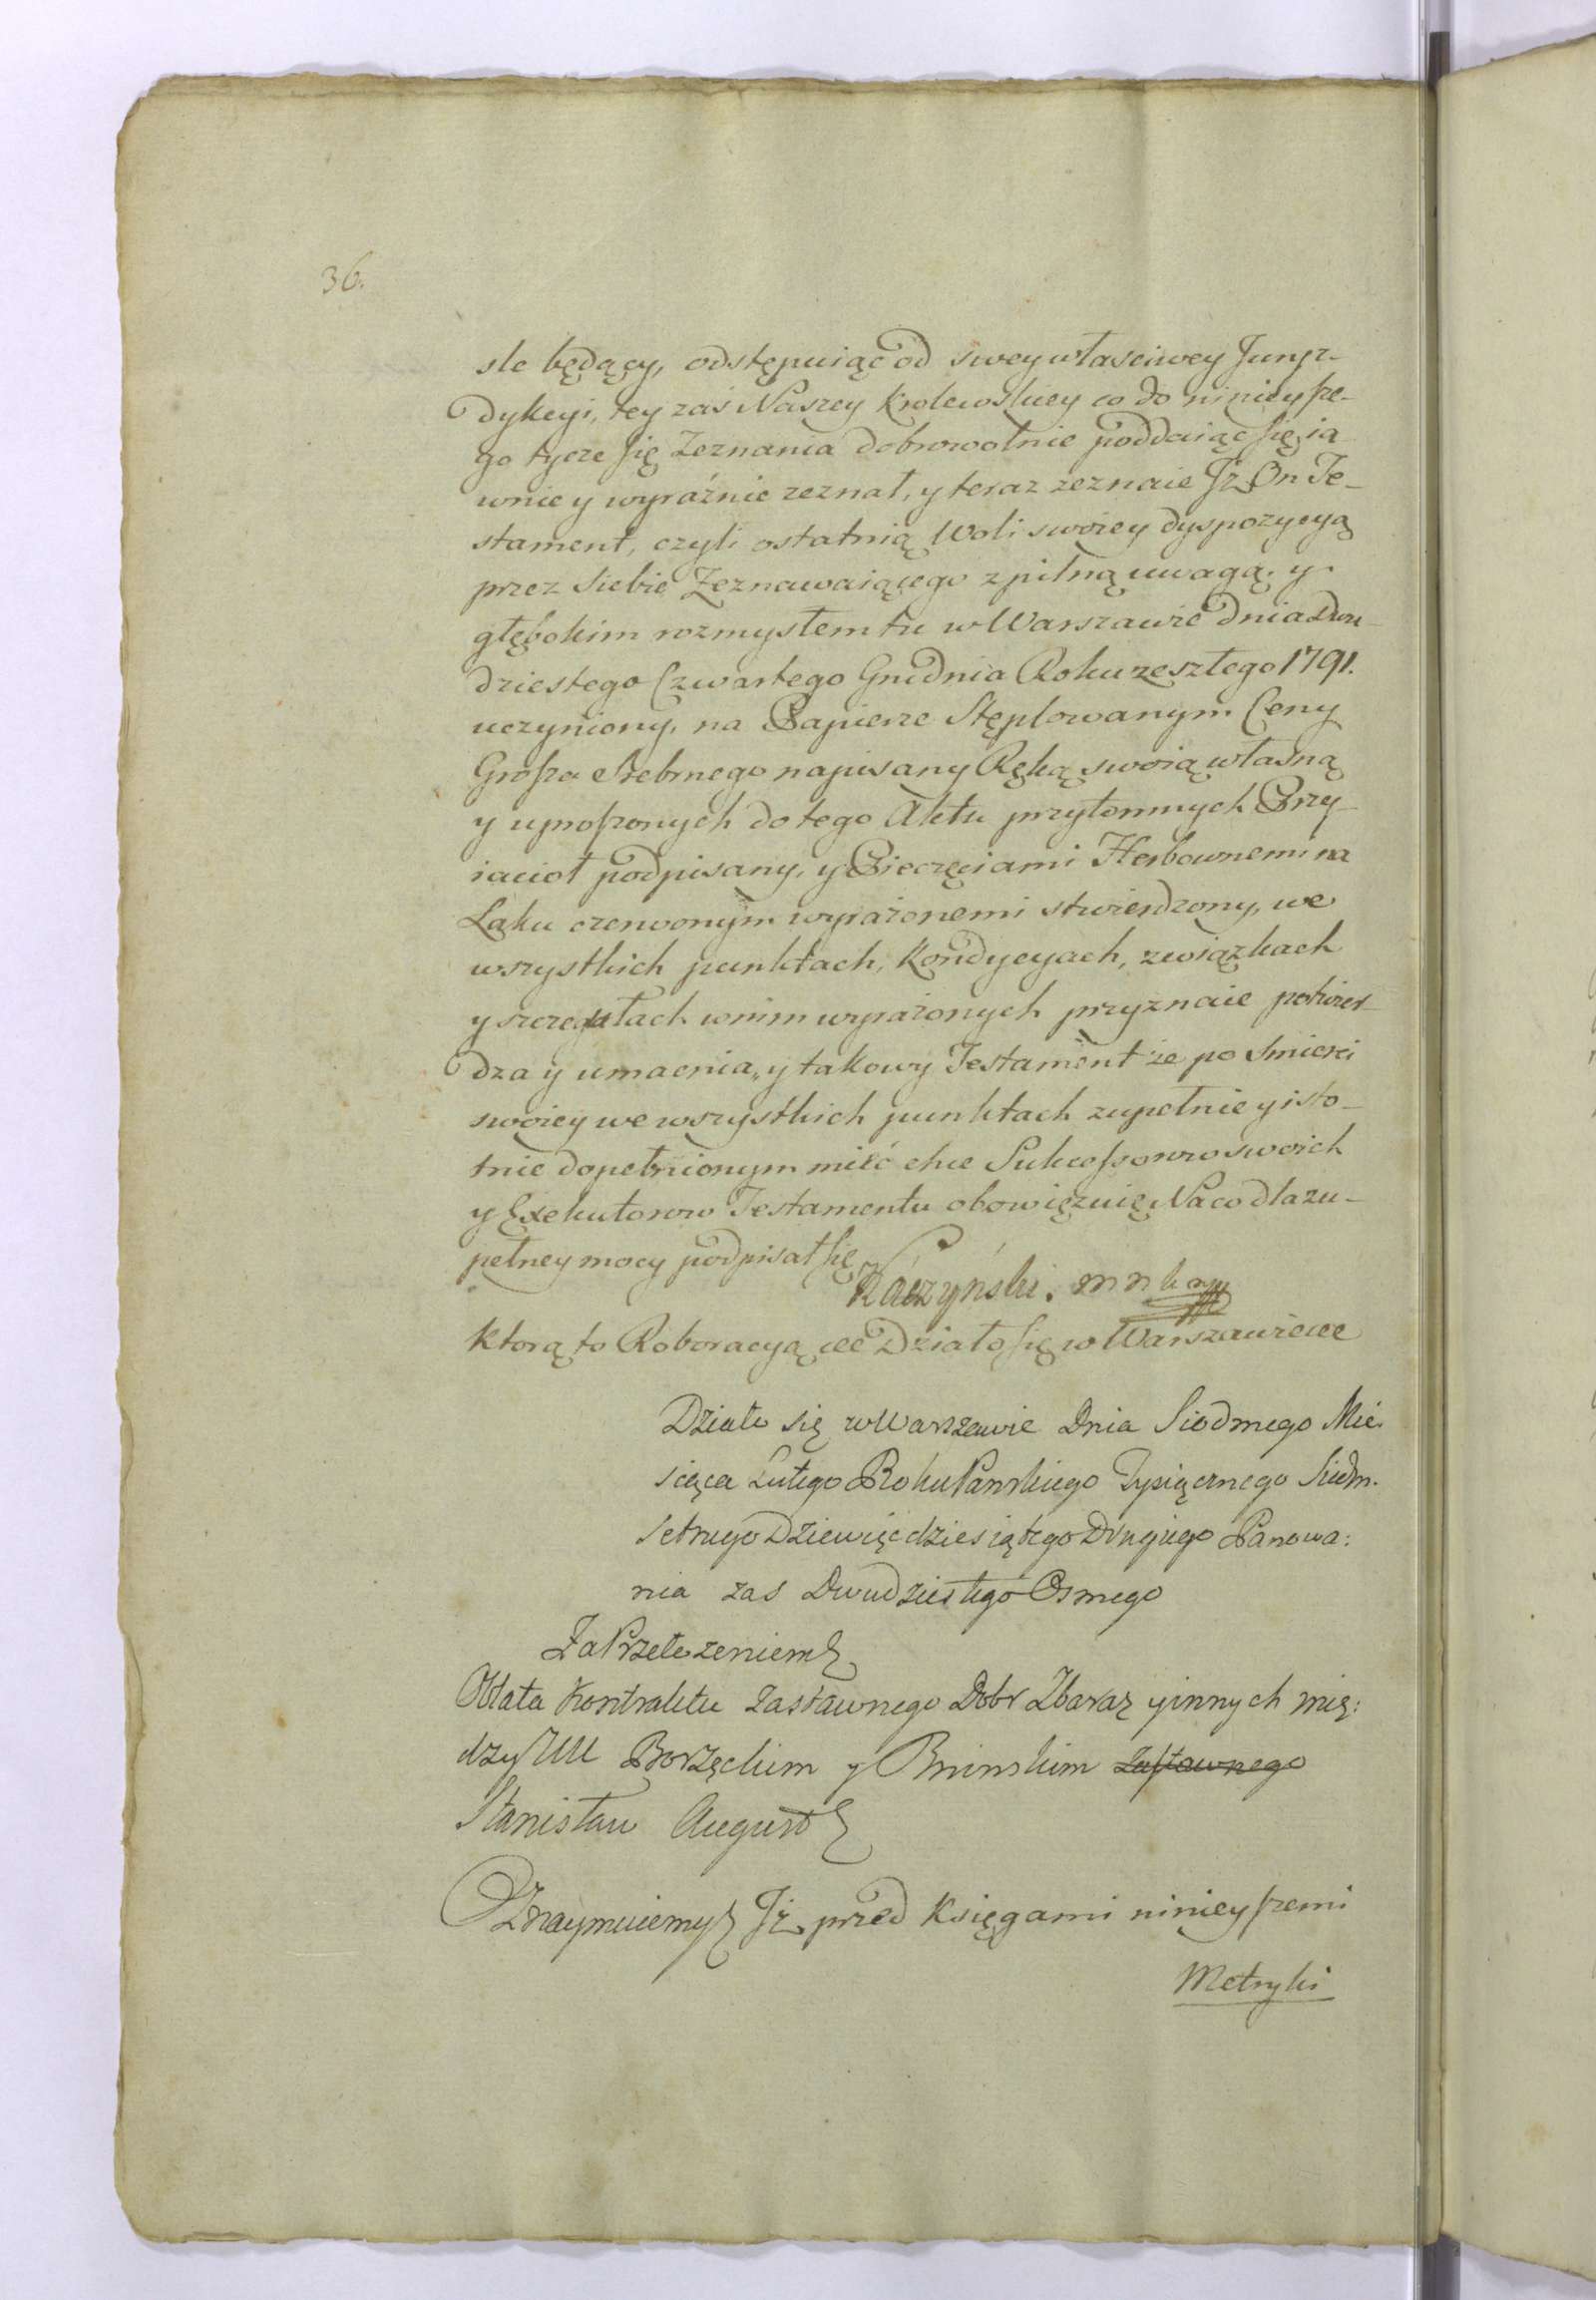 36.
śle będący, odstępuiąc od swey własciwey Juryz-
dykcyi, tey zaś Naszey Krolewskiey co do ninieysze-
go tycze się Zeznania dobrowolnie poddaiąc się ia
wnie y wyraźnie zeznał, y teraz zeznaie Jż On Te-
stament, czyli ostatnią Woli swoiey dyspozycyą
przez Siebie Zeznawaiącego z pilną uwagą, y
głębokim rozmysłem tu w Warszawie dnia Dwu-
dziestego Czwartego Grudnia Roku zeszłego 1791.
uczyniony, na Papierze Stęplowanym Ceny
Grosza Srebrnego napisany Ręką swoią własną
y uproszonych do tego Aktu przytomnych Przy-
iacioł podpisany, y Pieczęciami Herbownemi na
Laku czerwonym wyrażonemi stwierdzony, we
wszystkich punktach, Kondycyach, związkach
y szczegułach w nim wyrażonych przyznaie potwier-
dza y umacnia, y takowy Testament że po Smierci
swoiey we wszystkich punktach zupełnie y isto-
tnie dopełnionym mieć chce Sukcessorow swoich
y Exekutorow Testamentu obowięzuię Na co dla zu-
pełney mocy podpisał się
Raczyński. mnkm
Ktorą to Roboracyą etc Działo się w Warszawie etc
Działo się w Warszawie Dnia Siodmego Mie-
siąca Lutego Roku Pańskiego Tysiącznego Siedm-
setnego Dziewięcdziesiątego Drugiego Panowa:
nia zas Dwudziestego Osmego
Za Przełozeniem
Oblata Kontraktu Zastawnego Dobr Zbaraz y innych mię:
dzy UU Borzęckim y Bninskim Zastawnego
Stanisław August
Oznaymuiemy Jż przed Księgami ninieyszemi
Metryki